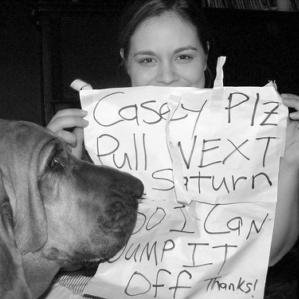 Casey Plz
Pull NEXT
Saturn
SO I CAN
JUMP IT
Off Thanks!